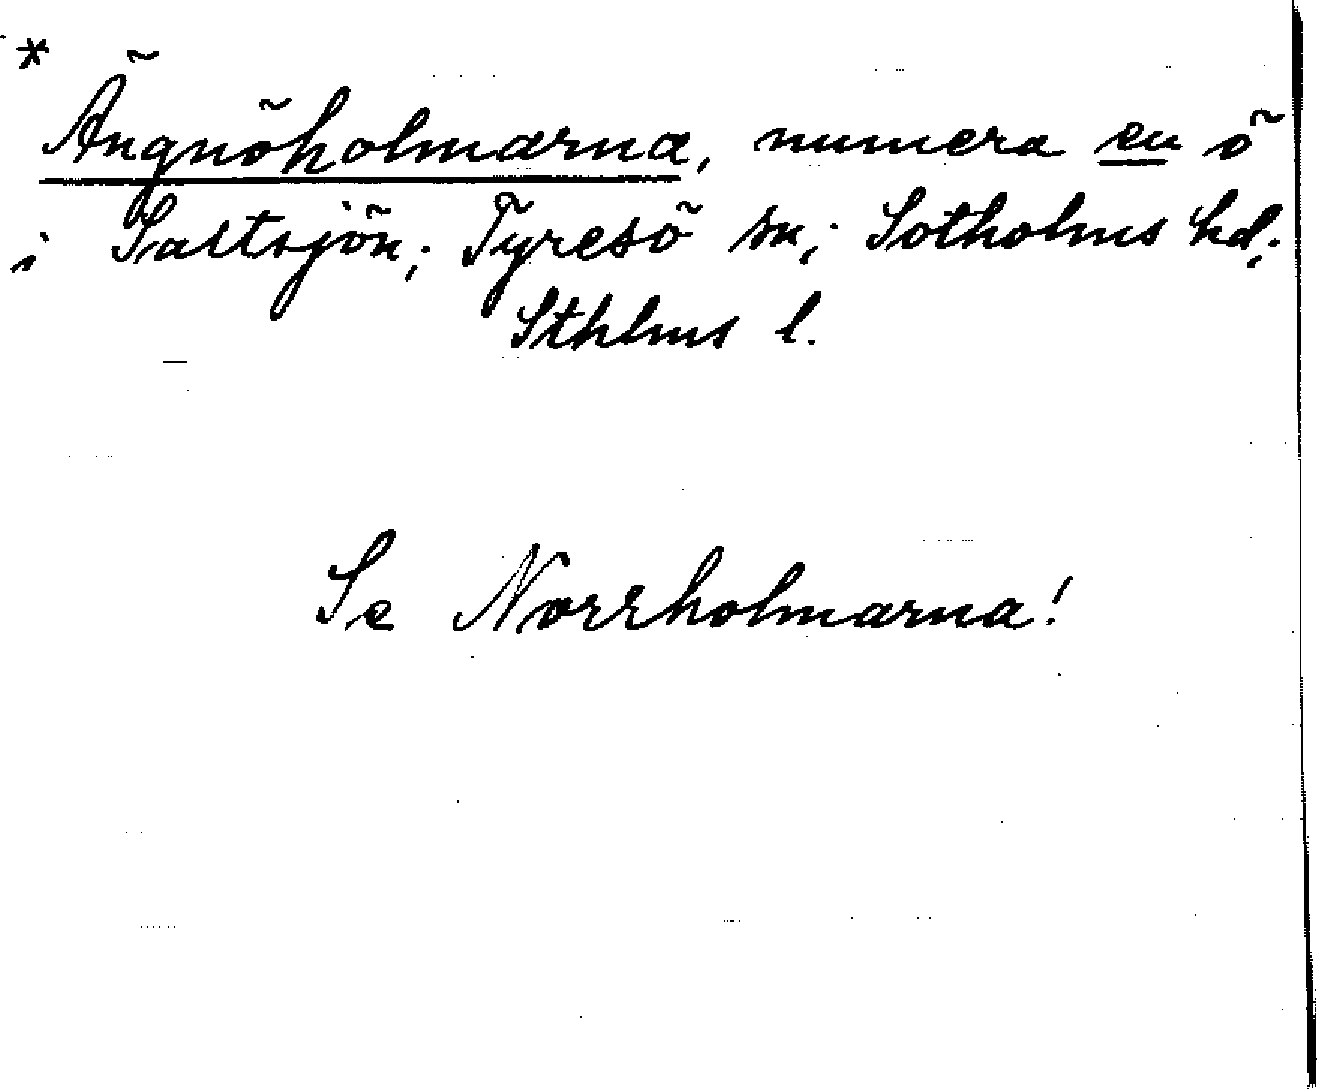 * Ängnöholmarna, numera en ö
i Saltsjön; Tyresö sn; Sotholms hd;
Sthlms l.
Se Norrholmarna!